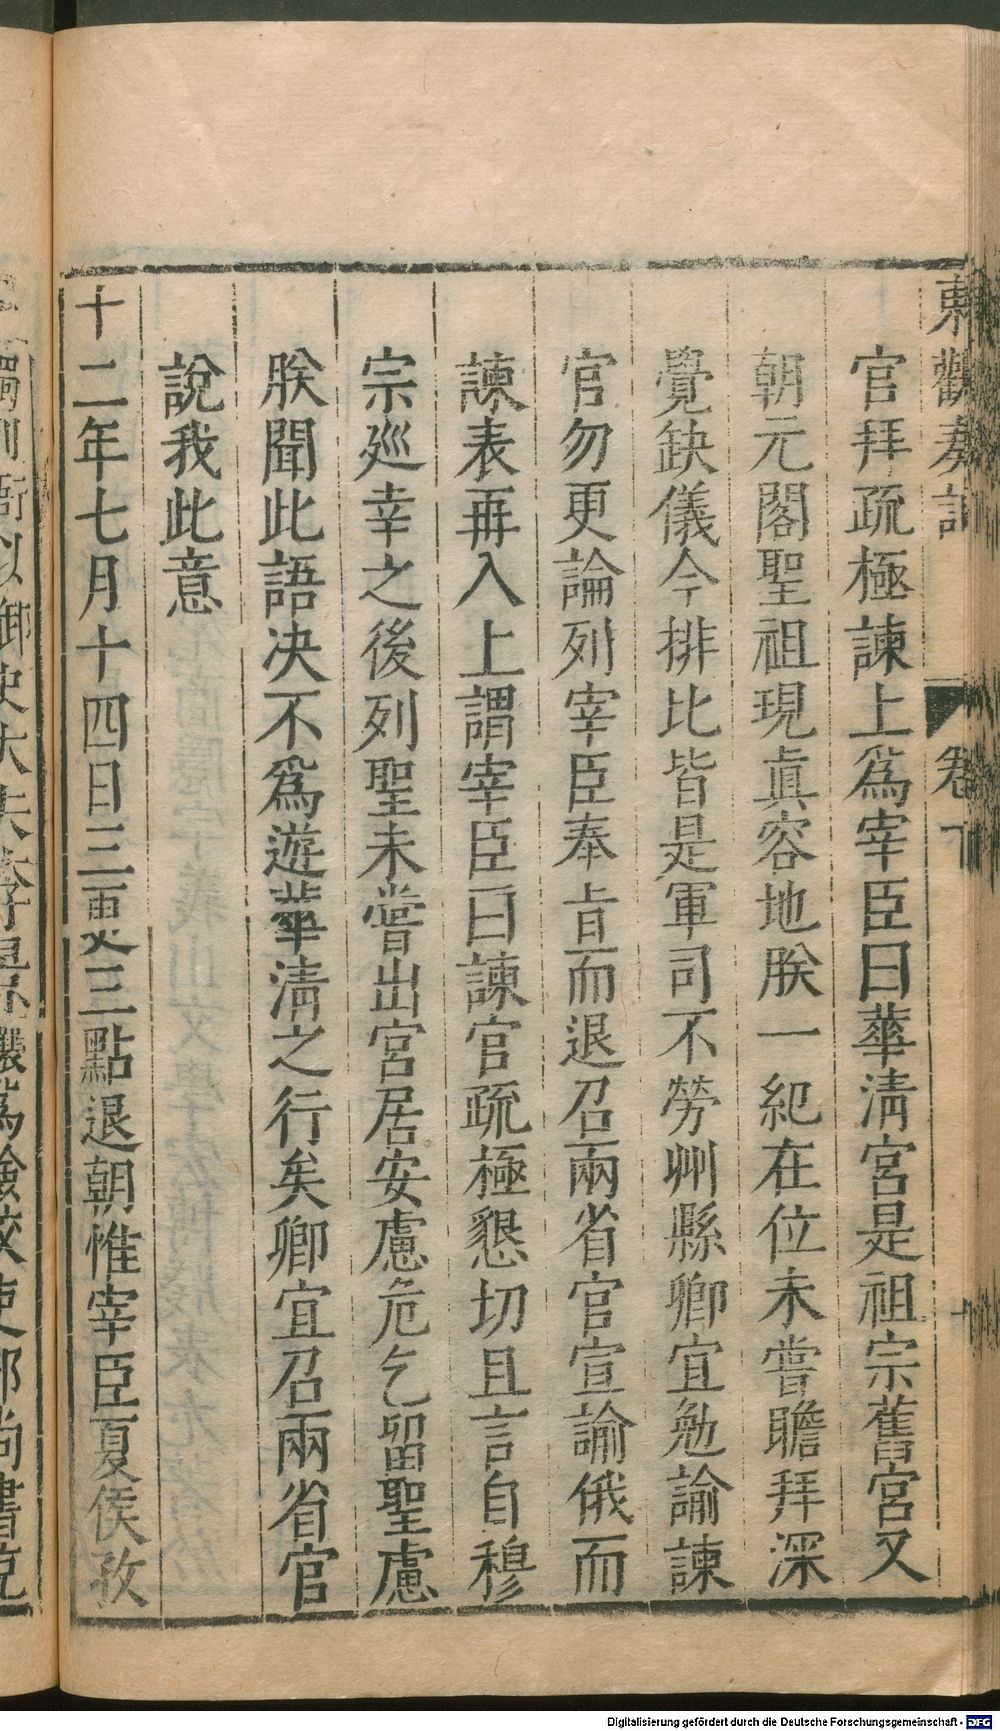 東觀奏記 卷下 十
官拜疏極諫上爲宰臣曰華淸宮是祖宗舊宮又
朝元閣聖祖現眞容地朕一紀在位未嘗瞻拜深
覺缺儀今排比皆是軍司不勞州縣卿宜勉諭諫
官勿更論列宰臣奉旨而退召兩省官宣諭俄而
諫表再入上謂宰臣曰諫官疏極懇切且言自穆
宗廵幸之後列聖未嘗出宮居安慮危乞留聖慮
朕聞此語决不爲遊華淸之行矣卿宜召兩省官
說我此意
十二年七月十四日三更三點退朝惟宰臣夏侯孜
以御史大夫李 爲檢校吏部尚書兗
Digitalisierung gefördert durch die Deutsche Forschungsgemeinschaft - DFG